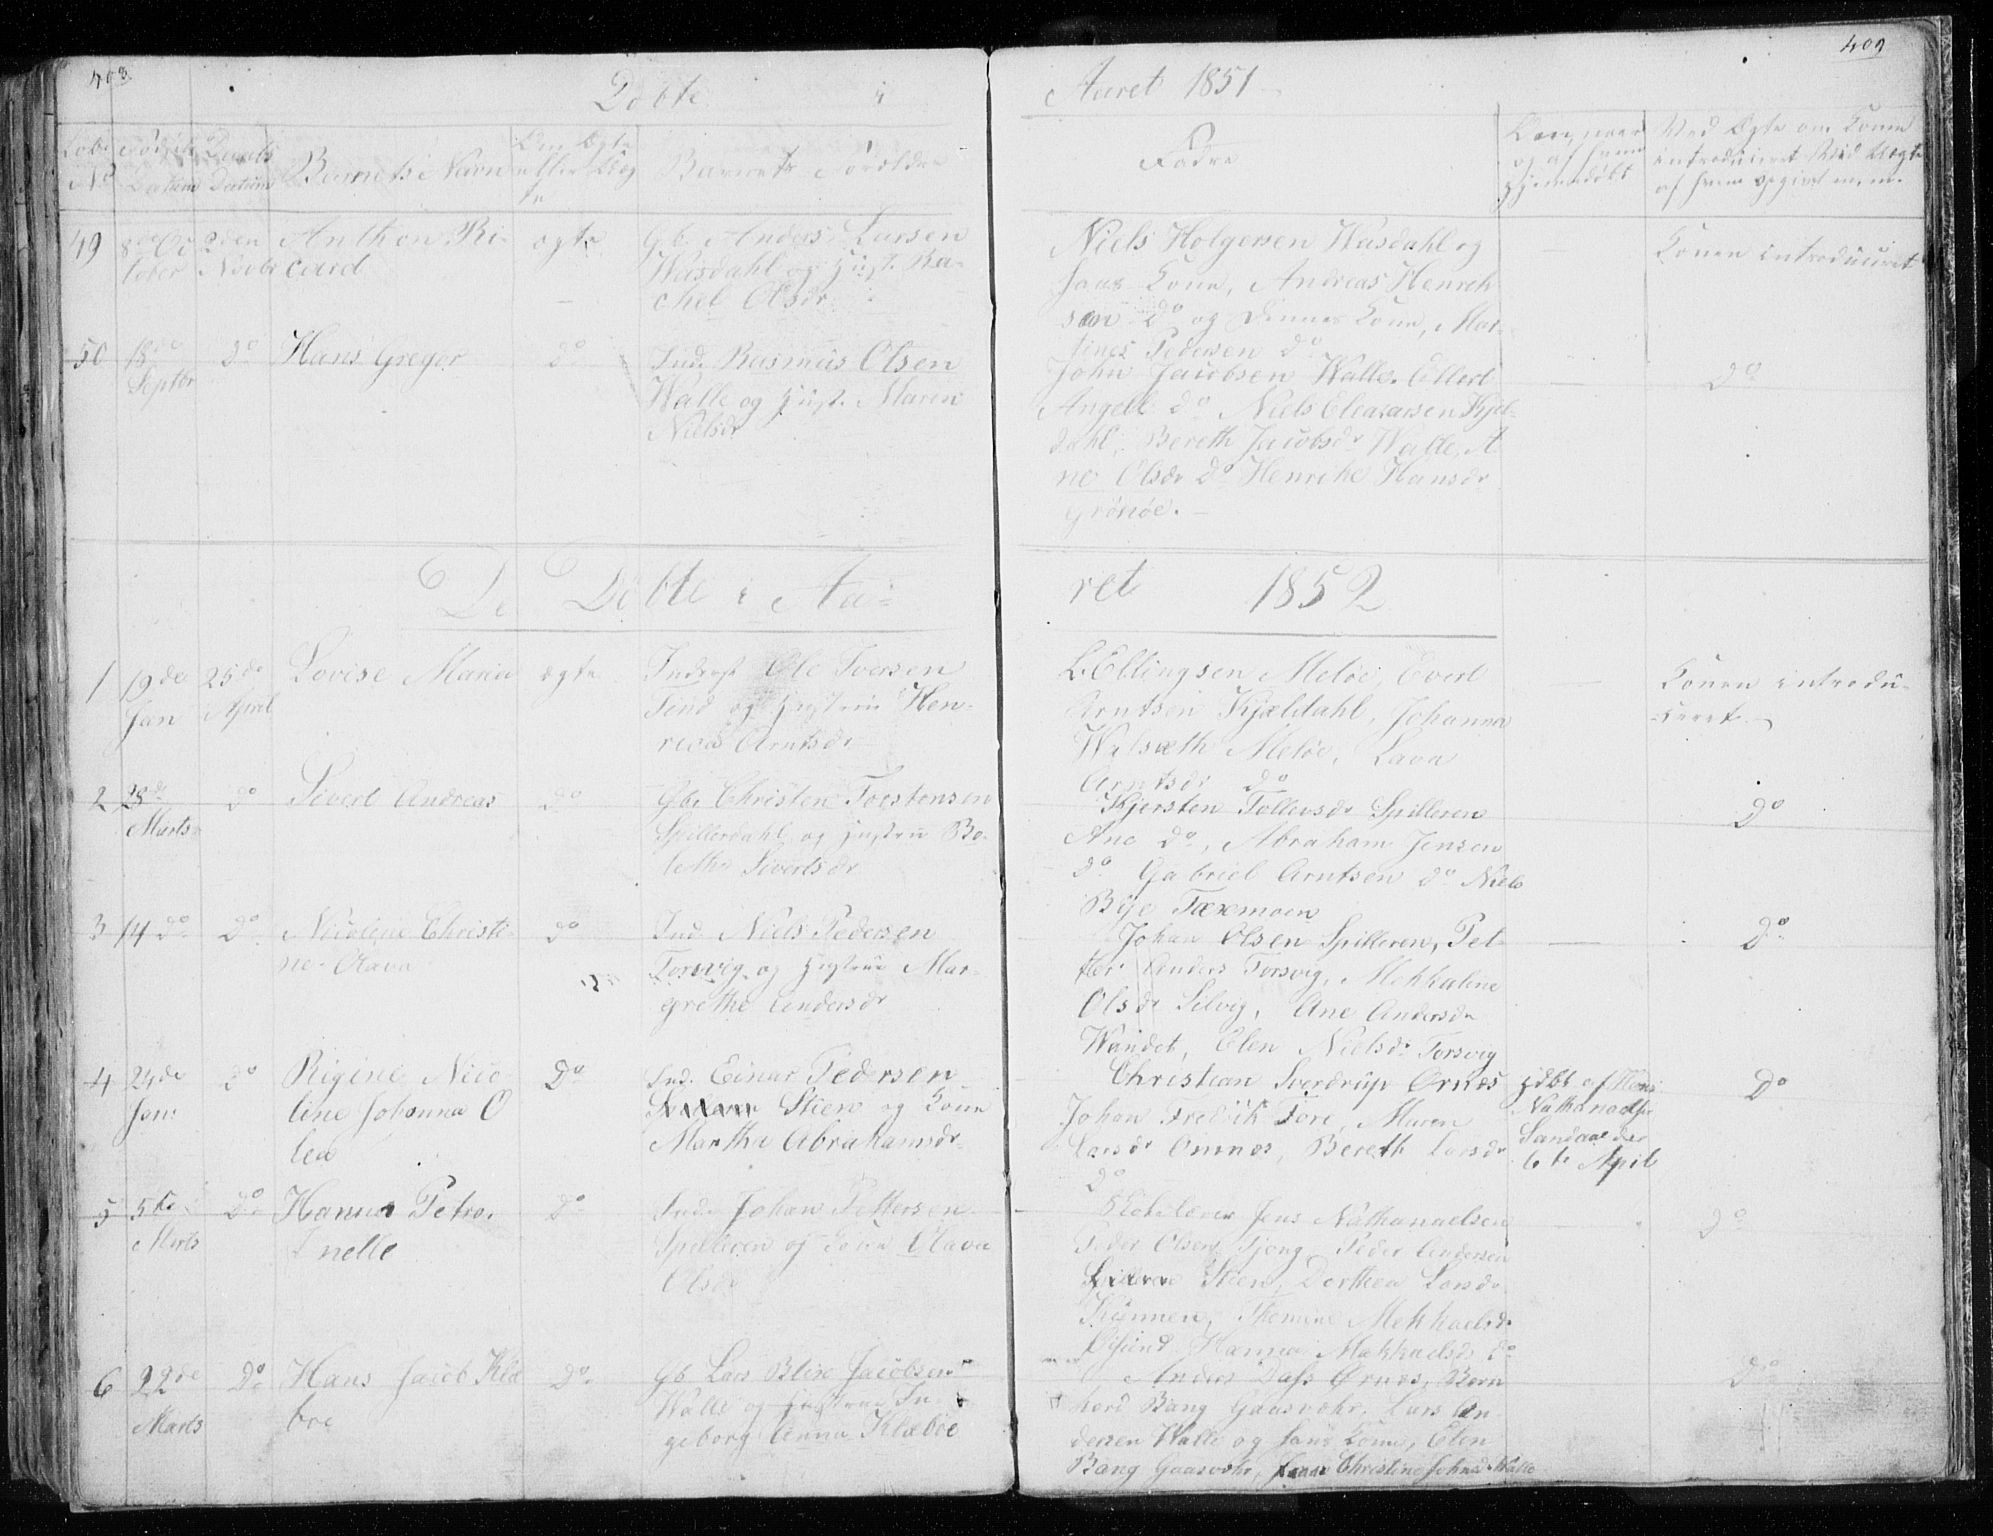 403
409
Døbte i
Aaret 1851
Løbe No
Fødsels Datum
Daabs Datum
Barnets Navn
Om Ægte eller Uægte
Barnets Forældre
Fadre
og af hvem hjemmedøbt
Ved Ægte om Konen
introduceret Ved Uægte
af hvem opgivet m. m.
49
8de October
2den Novbr
Anthon Ri-
card
ægte
Gb. Anders Larsen
Wasdahl og Hust. Ra-
chel Olsdr
Niels Holgersen Wasdahl og
hans Kone, Andreas Henrik
sen do og dennes Kone, Mar-
tines Pedersen do
Konen introduceret
50
18de Septbr
do
Hans Gregor
do
Ind. Rasmus Olsen
Walle og Hust. Maren
Nielsdr
John Jacobsen Walle, Ellert
Angell do Niels Eleasarsen Kjel-
dahl, Bereth Jacobsdr Walle, A
ne Olsdr do Henrike Hansdr
Grønøe.
do
De Døbte i Aa-
ret 1852
1
19de Jan
25de April
Lovise Maria
ægte
Inderst Ole Iversen
og Hustrue Hen-
Arntsdr
Ellingsen Meløe, Evert
Arntsen Kjeldahl, Johanna
Meløe, Lava
Arntsdr do
Konen introdu-
ceret
2
28de Marts
do
Sivert Andreas
do
Gbr Christen Torstensen
Spillerdahl og Hustru Be-
Sivertsdr
Kjersten Tollevsdr Spilleren
Ane do, Abraham Jensen
do Gabriel Arntsen do Niels
Bye
do
3
14 do
do
Nicoline Christi-
ne Olava
do
Ind. Niels Pedersen
Forsvig og Hustrue Mar-
grethe Andersdr
Johan Olsen Spilleren, Pet-
ter Anders Forsvig, Mekkaline
Olsdr Selvig, Ane Andersdr
Wandet, Elen Nielsdr Forsvig
do
4
24de Jan:
do
Rigine Nico-
line Johanna O
lea
do
Ind. Einar Pedersen
Stien og Kone
Martha Abrahamsdr
Christian Sverdrup Ørnes
Johan Fredrik Fore, Maren
Larsdr Omnes, Bereth Larsdr
do
Sandaae den
6te April
do
5
5te Marts
do
Hanna Petro-
nelle
do
Ind. Johan Pettersen
Spilleren og Kone Olava
Olsdr
Skolelærer Jens Nathanaelsen
Peder Olsen Tjong, Peder Andersen
Stien, Dorthea Larsdr
Kunnen, Mekkaelsdr
Hanna Mekkaelsdr do
do
6
22de Marts
do
Hans Jacob Klæ
boe
do
Gb Lars Blix Jacobsen
Walle og Hustrue In-
geborg Anna Klæboe
Anders Dass Ørnes, Bern
hard Bang Gaasvær, Lars An-
dersen Walle og hans Kone, Elen
Bang Gaasvær, Christine Johnsdr Walle
do